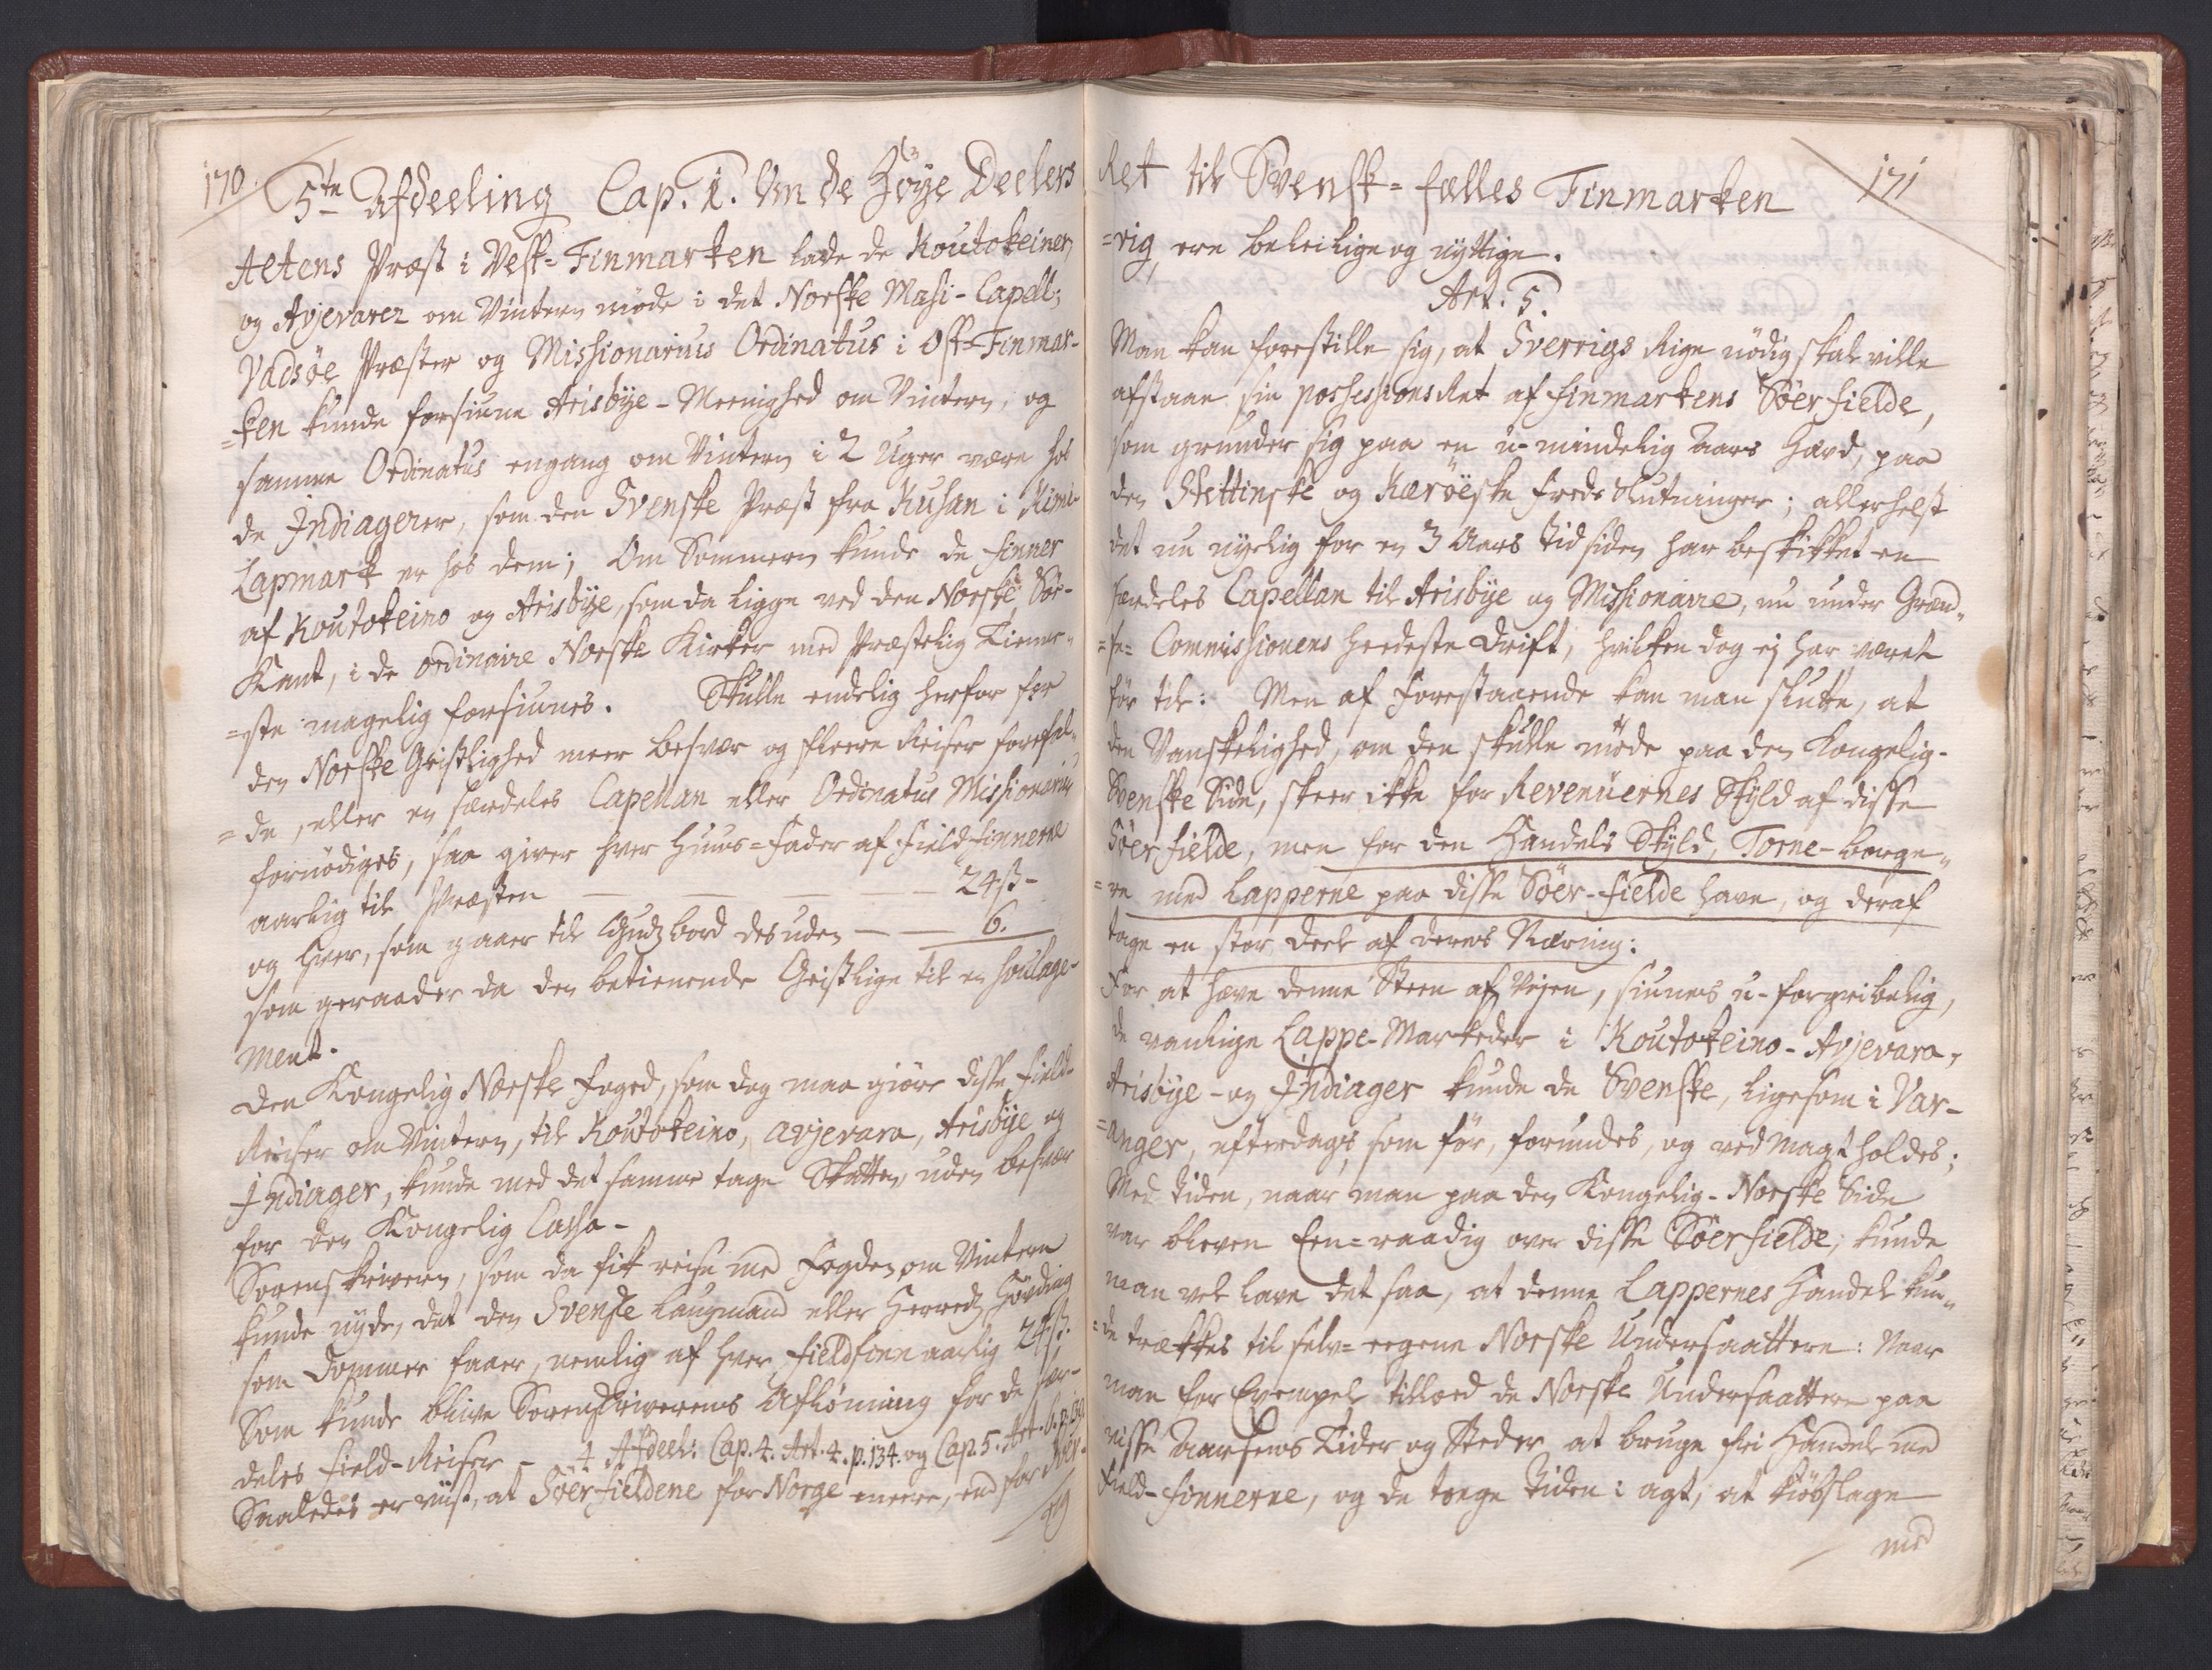 170.
5te Afdeeling Cap. 1. Om de Høye Deelers
Altens Præst i Vest-Finmarken lade de Koutokeiner,
og Avjevarer om Vintern møde i det Norske Masi-Capell;
Vadsøe Præster og Missionarius Ordinatus i Ost-Finmar-
=ken kunde forsiune Arisbÿe-Meenighed om Vintern, og
samme Ordinatus engang om Vintern i 2 Uger være hos
de Indiagerer, som den Svenske Præst fra Kusan i Kimi-
Lapmark er hos dem; Om Sommern kunde de finner
af Koutokeino og Arisbÿe, som da ligge ved den Norske Søe-
Kant, i de ordinaire Norske Kirker med Præstelig Tiene-
=ste magelig forsiunes. Skulle endelig herfor før
den Norske Geistlighed meer besvær og fleere Reiser forefal-
=de, eller en særdeles Capellan eller Ordinatus Missionarius
fornødiges, saa giver hver Huus=Fader af Field-finnerne
aarlig til Præsten — — — — 24ß-
og hver, som gaaer til Gudz bord desuden — — 6.
som geraader da den betienende Geistlige til en soulage-
ment.
Den Kongelig Norske Foged, som dog maa giøre disse Field-
Reiser om Vintern, til Koutokeino, Avjevara, Arisbÿe og
Indiager, kunde med det samme tage Skatten, uden besvær
for den Kongelig Cassa-
Sorenskriveren, som da fik reise med Fogden om Vintern
kunde nyde, det den Svenske Laugmand eller Herredz Høvding
som Dommer faaer, nemlig af hver fieldfinn aarlig 24ß.
Som kunde blive Sorenskriverens Aflønning for de sær-
deles Field-Reiser - 4 Afdeel: Cap. 4. Art. 4. p. 134. og Cap. 5. Art. 6. p.
Saaledes er viist, at Søerfieldene for Norge meere, end for Sve-
rig
Ret til Svensk=fælles Finmarken
171
=rig, ere beleilige og nyttige.
Art. 5.
Man kan forestille sig, at Sverrigs Rige nødig skal ville
afstaae sin possessions Ret af finmarkens Søerfielde,
som grunder sig paa en u-mindelig Aars Hævd, paa
den Stettinske og Kærøeske Freds Slutninger; allerhelst
det nu nyelig for en 3 Aars Tid siden har beskikket en
særdeles Capellan til Arisbÿe og Missionaire, nu under Grænd-
=se= Commissionens heedeste Drift, hvilken dog ej har været
før til: Men af forestaaende kan man slutte, at
den Vanskelighed, om den skulle møde paa den Kongelig-
Svenske Side, skeer ikke for Revenüernes Skyld af disse
Søerfielde, men for den Handels Skyld, Torne-borge-
=re med Lapperne paa disse Søer-fielde have, og deraf
tage en stor Deel af deres Næring:
For at hæve denne Steen af Vejen, siunes u-forgribelig,
de vanlige Lappe-Markeder i Koutokeino-Avjevara,
Arisbÿe-og Indiager kunde de Svenske, ligesom i Var-
=anger, efterdags, som før, forundes, og ved magt holdes;
Med tiden, naar man paa den Kongelig-Norske Side
var bleven Een=raadig over disse Søerfielde, kunde
man vel lave det saa, at denne Lappernes Handel kun-
=de trækkes til selv=eegene Norske Undersaattere: Naar
man for Exempel tillod de Norske Undersaattere paa
visse Aarsens Tider og Steder at bruge fri Handel med
Field-finnerne, og de toege Tiden i agt, at kiøbslage
med